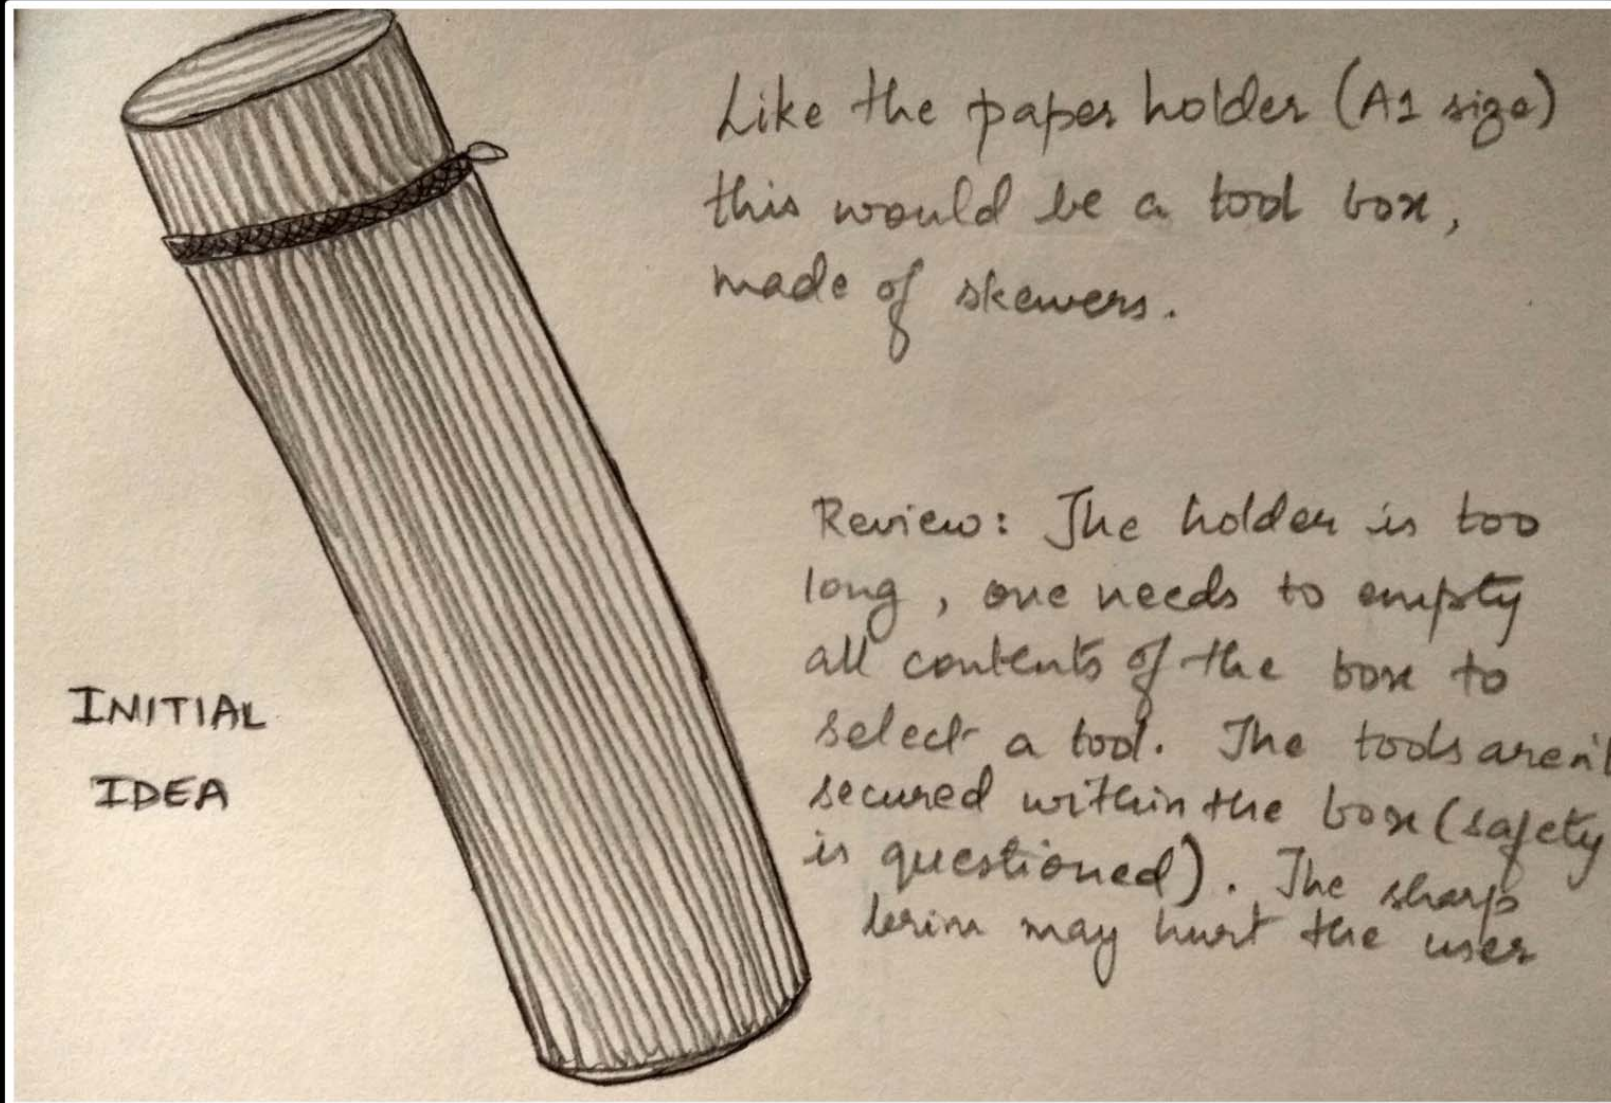 Like the paper holder (A1 size)
this would be a tool box,
made of skewers.
Review: The holder is too
long, one needs to empty
all contents of the box to
select a tool. The tools aren't
secured within the box (safety
is questioned). The sharp
brim may hurt the user
INITIAL
IDEA